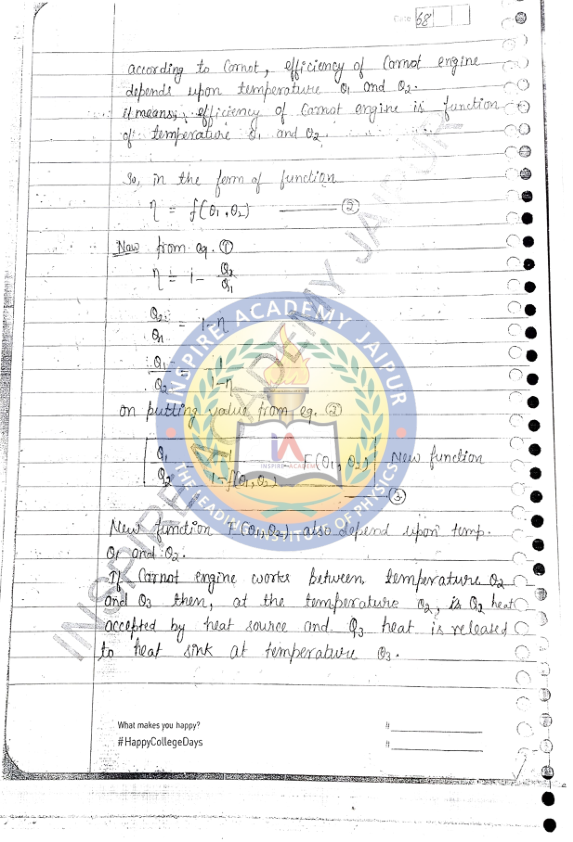 Date 68
according to Carnot, efficiency of Carnot engine
depends upon temperature θ1 and θ2.
it means, efficiency of Carnot engine is function
of temperature θ1 and θ2.
So, in the form of function
η = f(θ1, θ2) ——— ②
Now from eq. ①
η = 1 - Q2/Q1
Q2/Q1 = 1-η
Q1/Q2 = 1/1-η
on putting value from eq. ②
Q1/Q2 = 1/1-f(θ1, θ2) = F(θ1, θ2) New function
——— ③
New function F(θ1, θ2) also depend upon temp.
θ1 and θ2.
If Carnot engine works between temperature θ2
and θ3 then, at the temperature θ2, is Q2 heat
accepted by heat source and Q3 heat is released
to heat sink at temperature θ3.
INSPIRE ACADEMY JAIPUR
INSPIRE ACADEMY JAIPUR
INSPIRE ACADEMY
THE LEADING INSTITUTE OF PHYSICS
What makes you happy?
#HappyCollegeDays
#
#